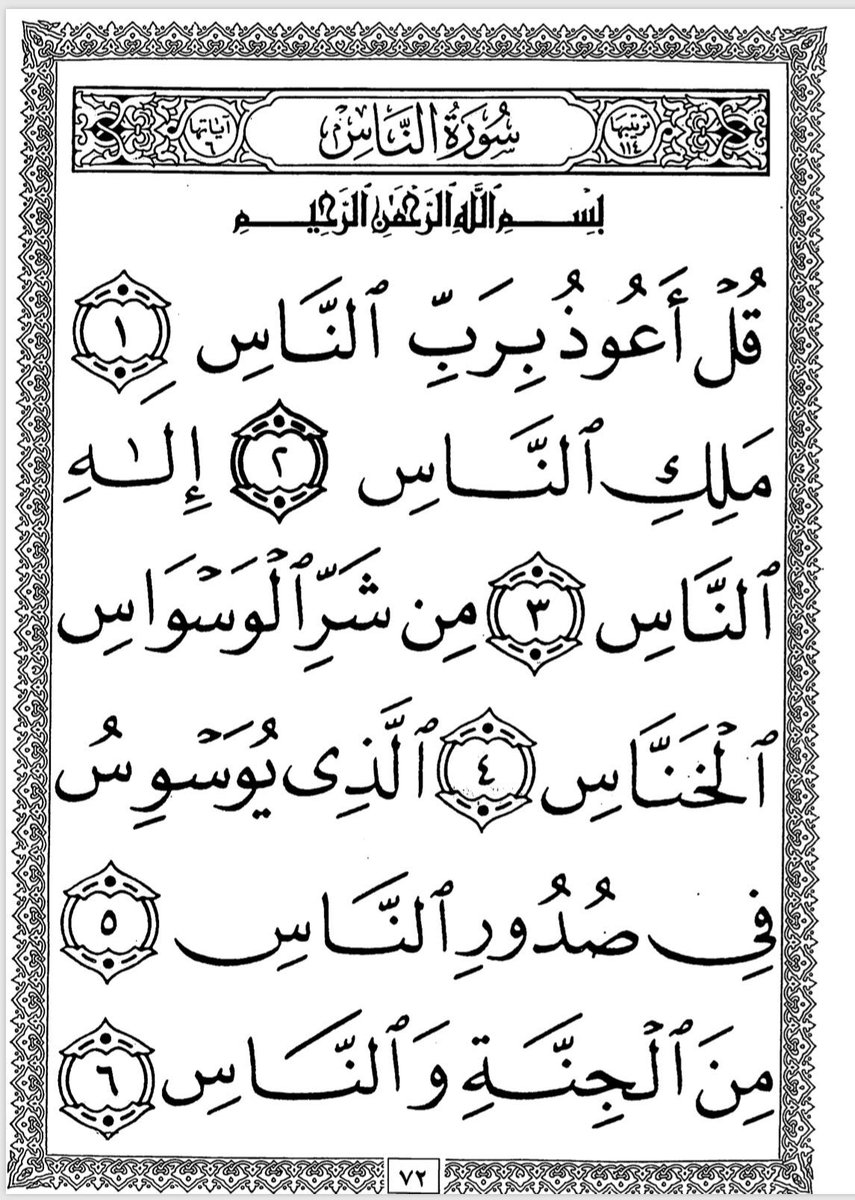 ترتيبها ١١٤ سُورَةُ النَّاسِ آياتها ٦
بِسْمِ ٱللَّهِ ٱلرَّحْمَٰنِ ٱلرَّحِيمِ
قُلْ أَعُوذُ بِرَبِّ ٱلنَّاسِ ١
مَلِكِ ٱلنَّاسِ ٢ إِلَٰهِ
ٱلنَّاسِ ٣ مِن شَرِّ ٱلْوَسْوَاسِ
ٱلْخَنَّاسِ ٤ ٱلَّذِى يُوَسْوِسُ
فِى صُدُورِ ٱلنَّاسِ ٥
مِنَ ٱلْجِنَّةِ وَٱلنَّاسِ ٦
٧٢